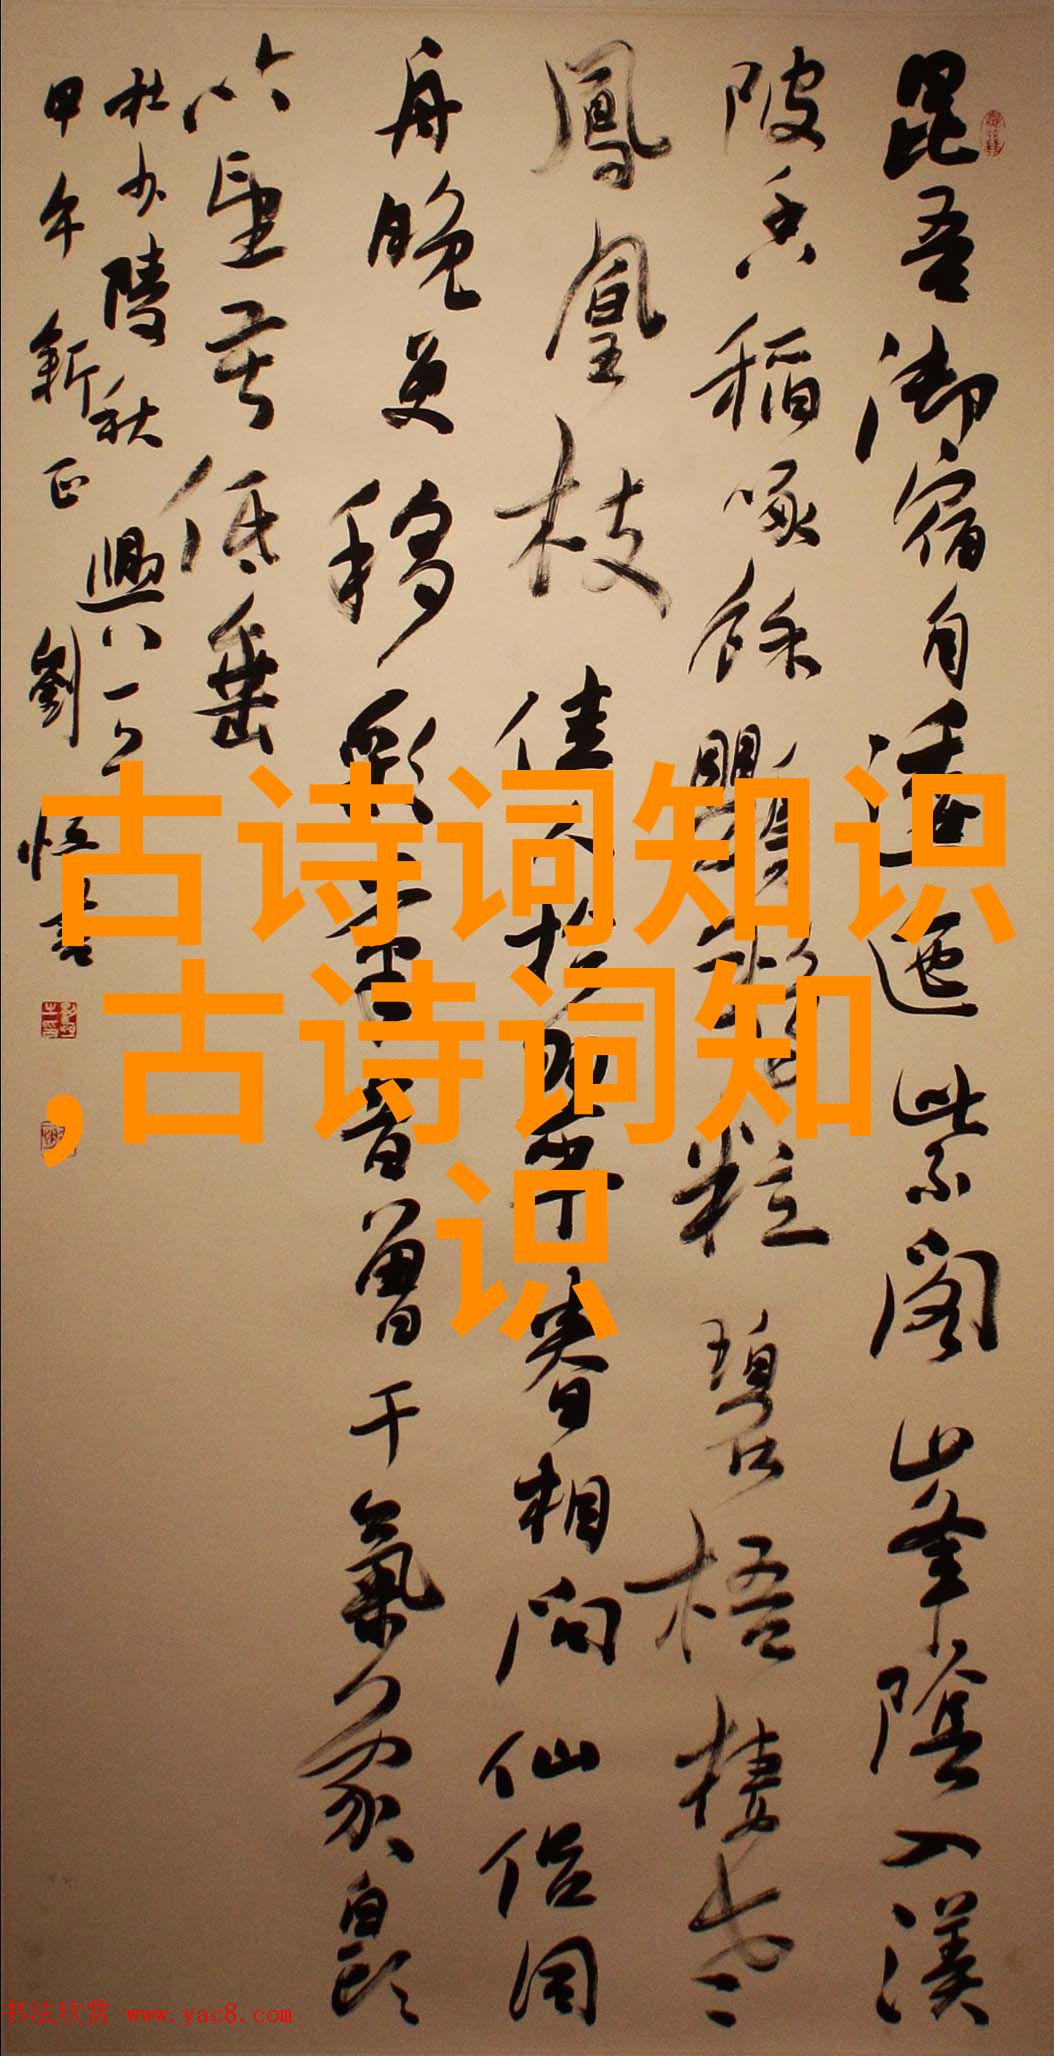 昆吾御宿自逶迤紫閣峯陰入渼
陂香稻啄餘鸚鵡粒碧梧棲老
鳳凰枝佳人拾翠春相問仙侣同
舟晚更移彩筆昔曾干氣象白頭
吟望苦低垂
杜少陵秋興八之一
甲午新正劉恒書
古诗词知识
,古诗词知
识
书法欣赏 www.yac8.com